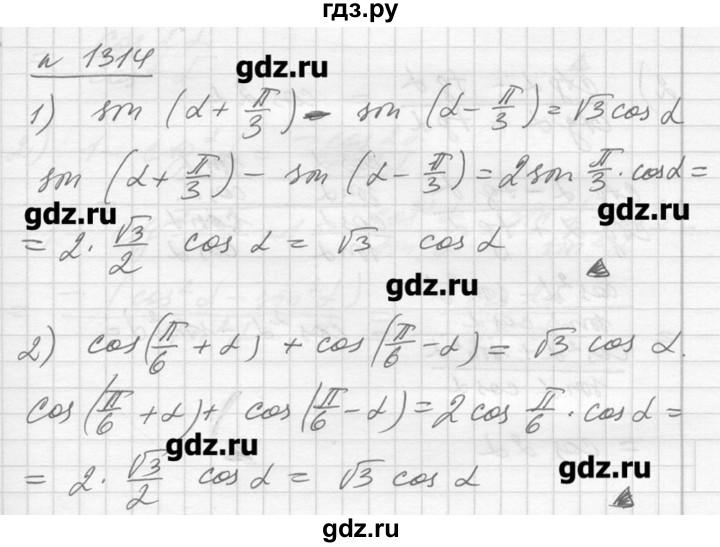 гдз.ру
n 1314
gdz.ru
1) sin (α + π/3) - sin (α - π/3) = √3 cos α
sin (α + π/3) - sin (α - π/3) = 2 sin π/3 · cos α =
gdz.ru
gdz.ru
= 2 · √3/2 cos α = √3 cos α
gdz.ru
2) cos (π/6 + α) + cos (π/6 - α) = √3 cos α.
cos (π/6 + α) + cos (π/6 - α) = 2 cos π/6 · cos α =
gdz.ru
gdz.ru
= 2 · √3/2 cos α = √3 cos α
gdz.ru